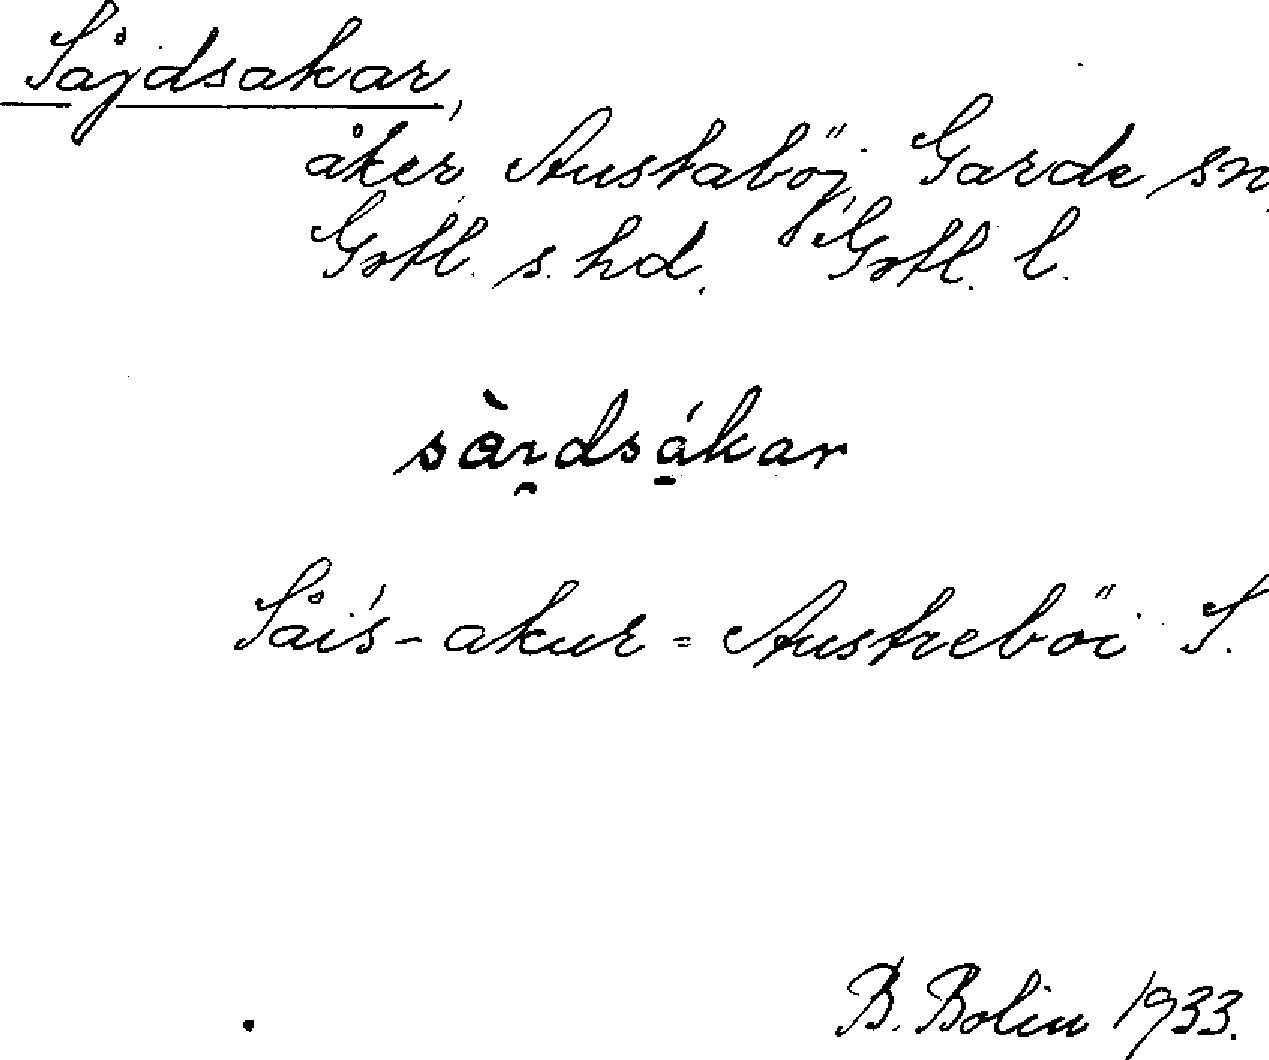 Såjdsakar,
åker, Austaböj, Garde sn,
Gotl. s. hd. Gotl. l.
sàɪ̯dsá̱kar
Såis-akur = Austreböi S.
B. Bolin 1933.